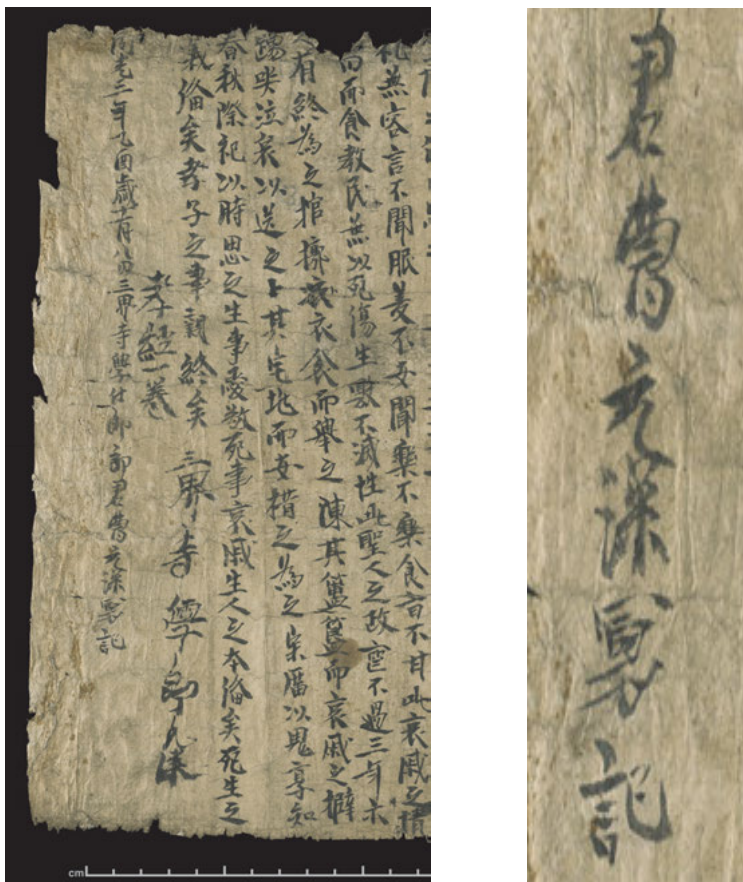 礼無容言不聞服美不安聞樂不樂食旨不甘此哀戚之情
日而食教民無以死傷生毀不滅性此聖人之政喪不過三年示
有終為之棺槨衣食而舉之陳其簠簋而哀戚之擗
踊哭泣哀以送之卜其宅地而安措之為之宗廟以鬼享知
春秋際祀以時思之生事愛敬死事哀戚生人之本俻矣死生之
義俻矣孝子之事親終矣 三界寺學郎元深
孝經一卷
同光三年乙酉歲十一月八日三界寺學仕郎郎君曹元深寫記
cm
君曹元深寫記